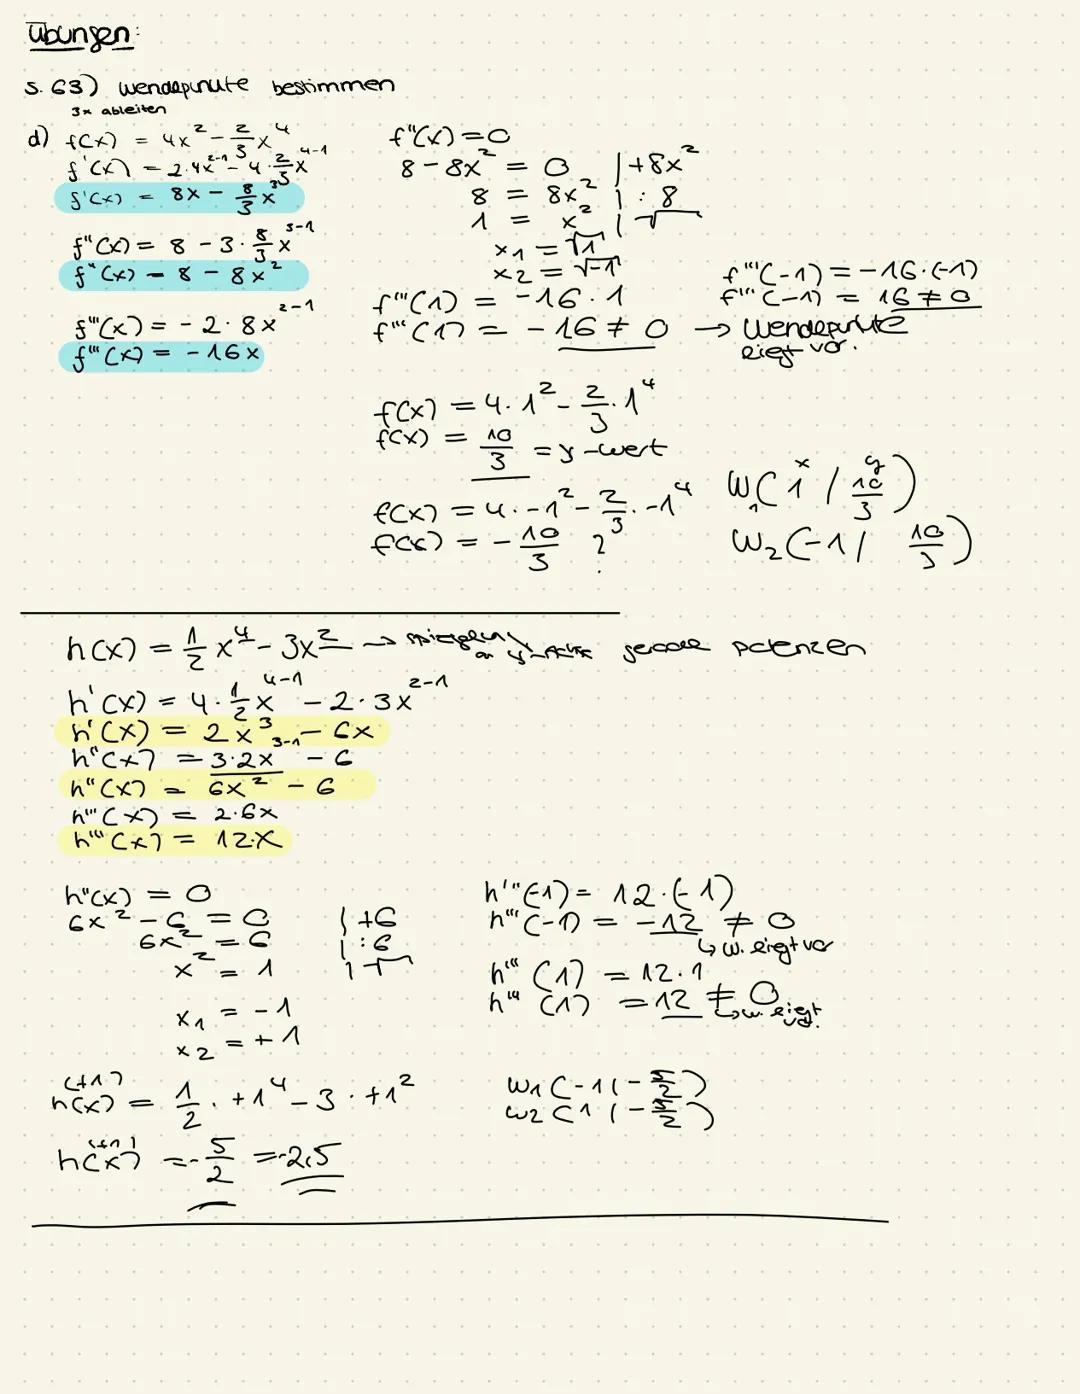 Übungen:
S. 63) Wendepunkte bestimmen
3x ableiten
d) f(x) = 4x² - 2/3 x⁴
f'(x) = 2·4x²⁻¹ - 4·2/3 x⁴⁻¹
f'(x) = 8x - 8/3 x³
f''(x) = 8 - 3·8/3 x³⁻¹
f''(x) = 8 - 8x²
f'''(x) = -2·8x²⁻¹
f'''(x) = -16x
f''(x) = 0
8 - 8x² = 0 | +8x²
8 = 8x² | :8
1 = x² | √
x₁ = √1
x₂ = √-1
f'''(1) = -16·1
f'''(1) = -16 ≠ 0 → Wendepunkte liegt vor.
f'''(-1) = -16·(-1)
f'''(-1) = 16 ≠ 0
f(x) = 4·1² - 2/3·1⁴
f(x) = 10/3 = y-wert
f(x) = 4·-1² - 2/3·-1⁴
f(x) = -10/3 ?
x y
W₁(1 / 10/3)
W₂(-1 / 10/3)
h(x) = 1/2 x⁴ - 3x² → spiegeln an y-Achse gerade Potenzen
h'(x) = 4·1/2 x⁴⁻¹ - 2·3x²⁻¹
h'(x) = 2x³ - 6x
h''(x) = 3·2x³⁻¹ - 6
h''(x) = 6x² - 6
h'''(x) = 2·6x
h'''(x) = 12·x
h''(x) = 0
6x² - 6 = 0 | +6
6x² = 6 | :6
x² = 1 | √
x₁ = -1
x₂ = +1
h'''(-1) = 12·(-1)
h'''(-1) = -12 ≠ 0
↳ w. liegt vor
h'''(1) = 12·1
h'''(1) = 12 ≠ 0
↳ w. liegt vor.
(+1)
h(x) = 1/2·+1⁴ - 3·+1²
(+1)
h(x) = -5/2 = -2,5
W₁(-1 | -5/2)
W₂(1 | -5/2)